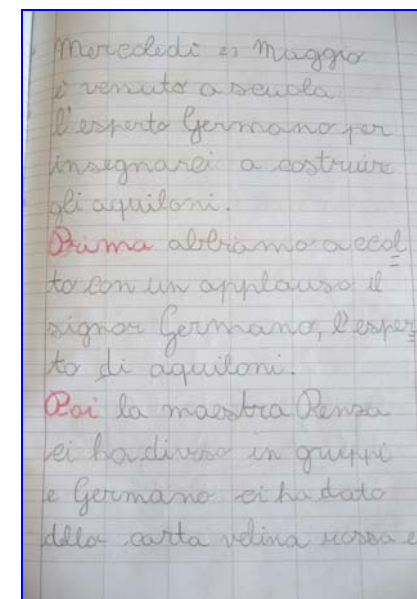 Mercoledì 21 Maggio
è venuto a scuola
l'esperto Germano per
insegnarci a costruire
gli aquiloni.
Prima abbiamo accol
to con un applauso il
signor Germano, l'esper
to di aquiloni.
Poi la maestra Renza
ci ha diviso in gruppi
e Germano ci ha dato
della carta velina rossa e